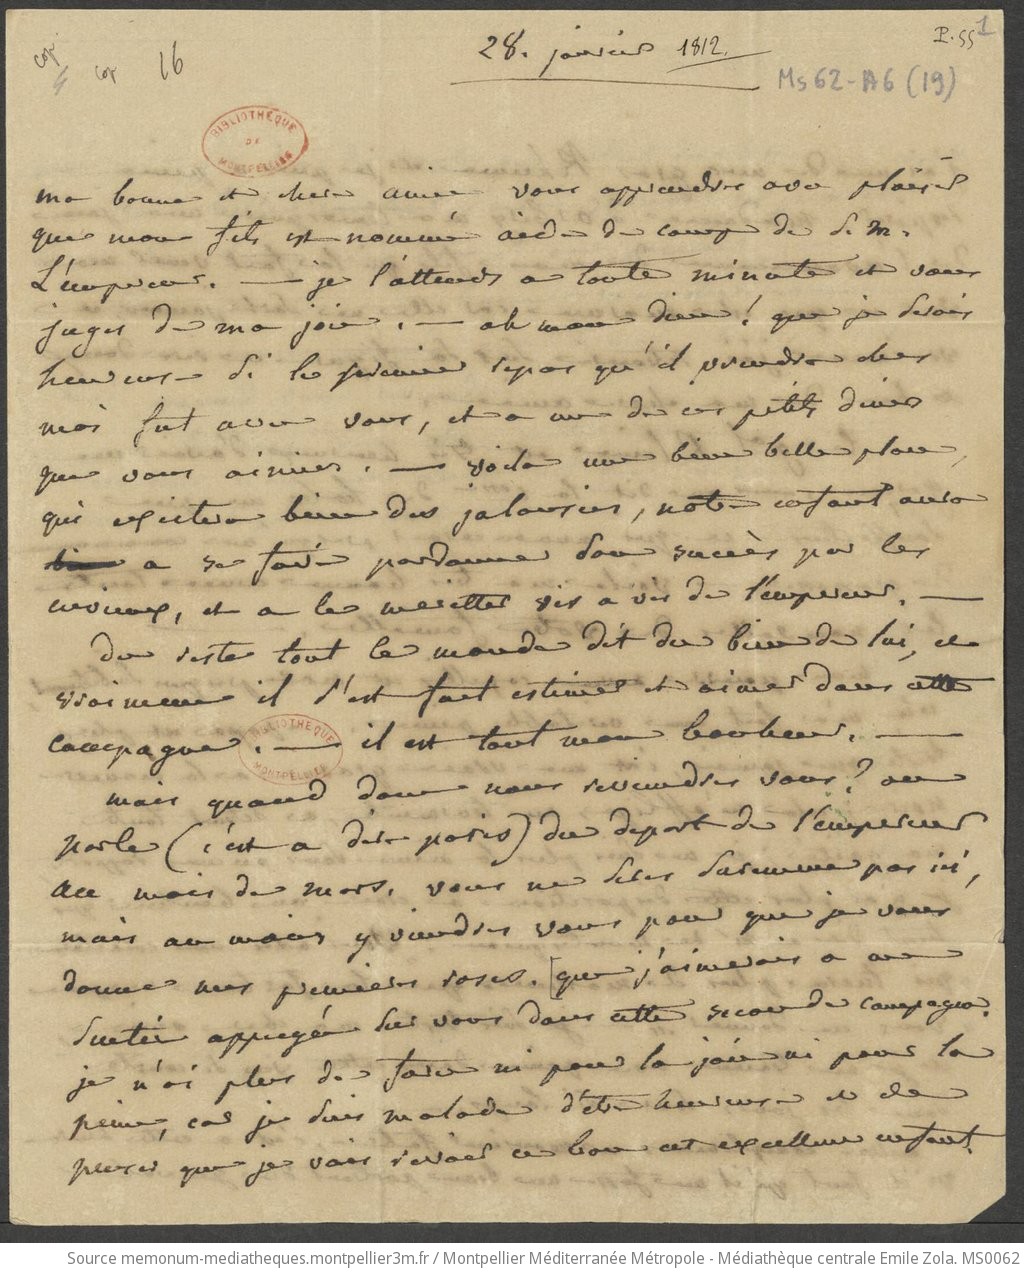 cop.
cop
16
28. janvier 1812.
P. 55
1
Ms 62-A6 (19)
BIBLIOTHÈQUE
DE
MONTPELLIER
ma bonne et chere amie vous apprendrez avec plaisir
que mon fils est nommé aide de camp de S. M.
L'empereur. — je l'attends a toute minute et vous
jugez de ma joie. — ah mon dieu! que je serois
heureuse si le premier repas qu'il prendra chez
moi fut avec vous, et a un de ces petits diners
que vous aimiez. — voila une bien belle place,
qui excitera bien des jalousies, notre enfant aura
a se faire pardonner son succès par les
envieux, et a le meriter vis a vis de l'empereur. —
du reste tout le monde dit du bien de lui, et
vraiment il s'est fait estimer et aimer dans cette
campagne. — il est tout mon bonheur. —
BIBLIOTHÈQUE
MONTPELLIER
mais quand donc nous reviendrez vous? on
parle (c'est a dire paris) du depart de l'empereur
au mois de mars. vous ne serez surement pas ici,
mais au moins y viendrez vous pour que je vous
donne mes premieres roses. [que j'aimerais a me
sentir appuyée sur vous dans cette seconde campagne.
je n'ai plus de force ni pour la joie ni pour la
peine, car je suis malade d'être heureuse et de
penser que je vais revoir ce bon et excellent enfant.
Source memonum-mediatheques.montpellier3m.fr / Montpellier Méditerranée Métropole - Médiathèque centrale Emile Zola. MS0062